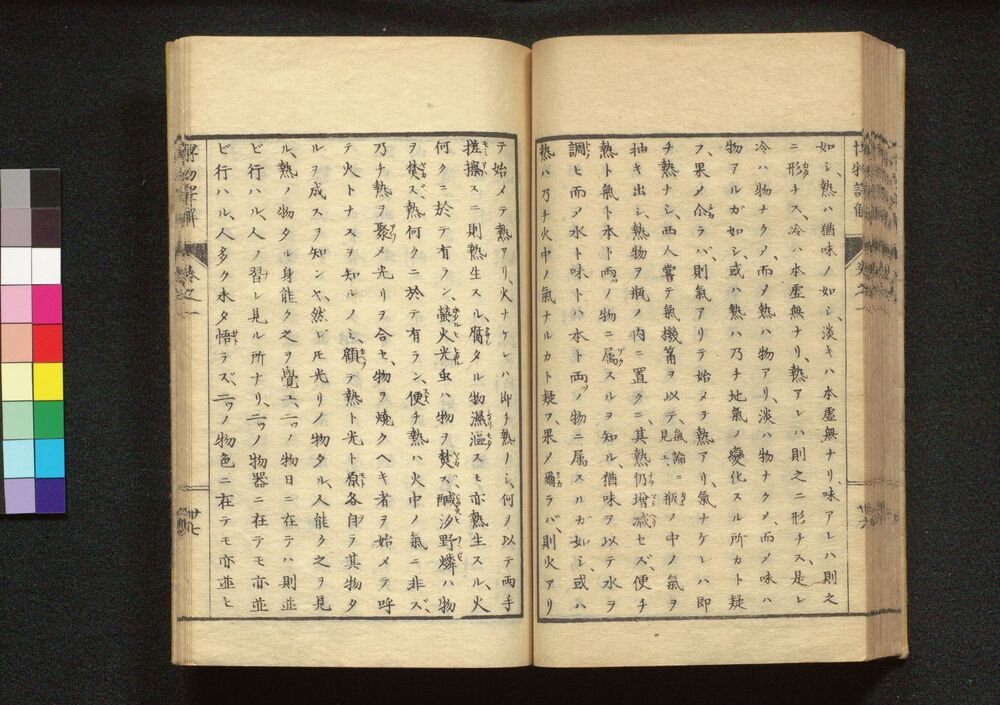 如シ、熱ハ猶味ノ如シ、淡キハ本虚無ナリ、味アレハ則之
ニ形チス、冷ハ本虚無ナリ、熱アレハ則之ニ形チス、是レ
冷ハ物ナクメ、而メ熱ハ物アリ、淡ハ物ナクメ、而メ味ハ
物アルガ如シ、或ハ熱ハ乃チ地氣ノ變化スル所カト疑
フ、果メ尒ラバ、則氣アリテ始メテ熱アリ、氣ナケレハ即
チ熱ナシ、西人嘗テ氣機筩ヲ以テ、氣論ニ見ユ瓶ノ中ノ氣ヲ
抽キ出シ、熱物ヲ瓶ノ内ニ置クニ、其熱仍増減セズ、便チ
熱ト氣ト本ト両ツノ物ニ属スルヲ知ル、猶味ヲ以テ水ヲ
調ヒ而メ水ト味トハ本ト両ツノ物ニ属スルガ如シ、或ハ
熱ハ乃チ火中ノ氣ナルカト疑フ、果メ爾ラバ、則火アリ
テ始メテ熱アリ、火ナケレハ即チ熱ノシ、何ヲ以テ両手
搓擦スニ則熱生スル、腐タル物濕漚スモ亦熱生スル、火
何クニ於テ有ラン、螢火光虫ハ物ヲ焚ズ、鹹汐野燐ハ物
ヲ焚ズ、熱何クニ於テ有ラン、便チ熱ハ火中ノ氣ニ非ズ、
乃チ熱ヲ聚メ光リヲ合セ、物ヲ燒クヘキ者ヲ始メテ呼
テ火トナスヲ知ルノミ、顧テ熱ト光ト原各自ラ其物タ
ルヲ成スヲ知ンヤ、然レモ光リノ物タル、人能ク之ヲ見
ル、熱ノ物タル身能ク之ヲ覺ユ、二ノ物日ニ在テハ則並
ビ行ハル、人ノ習レ見ル所ナリ、二ツノ物器ニ在テモ亦並
ビ行ハル、人多ク未タ悟ラズ、二ツノ物色ニ在テモ亦並ヒ